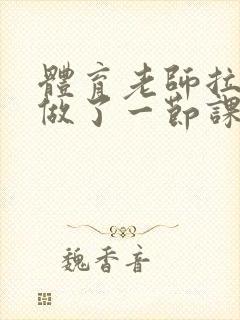 體育老師拉
做了一節課
魏香音